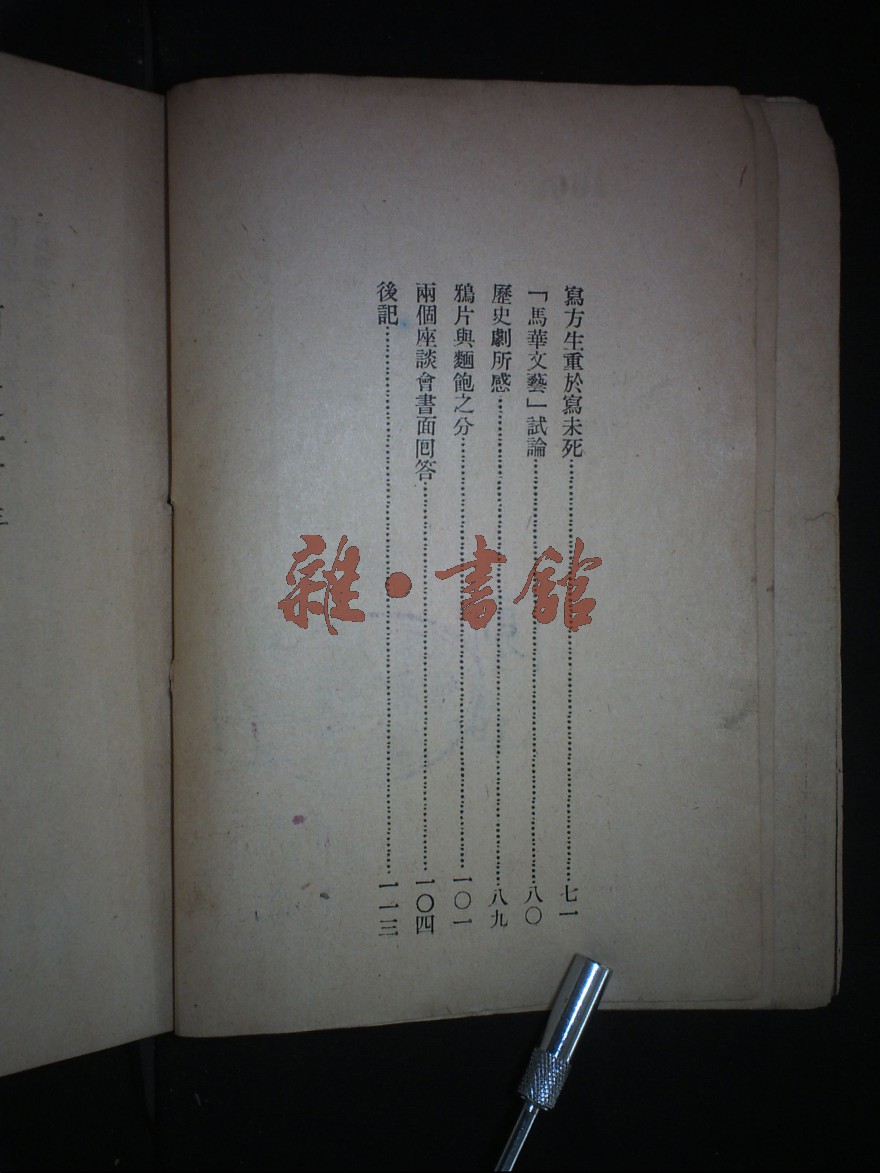 寫方生重於寫未死……七一
「馬華文藝」試論……八〇
歷史劇所感……八九
鴉片與麵飽之分……一〇一
兩個座談會書面回答……一〇四
後記……一一三
雜·書館